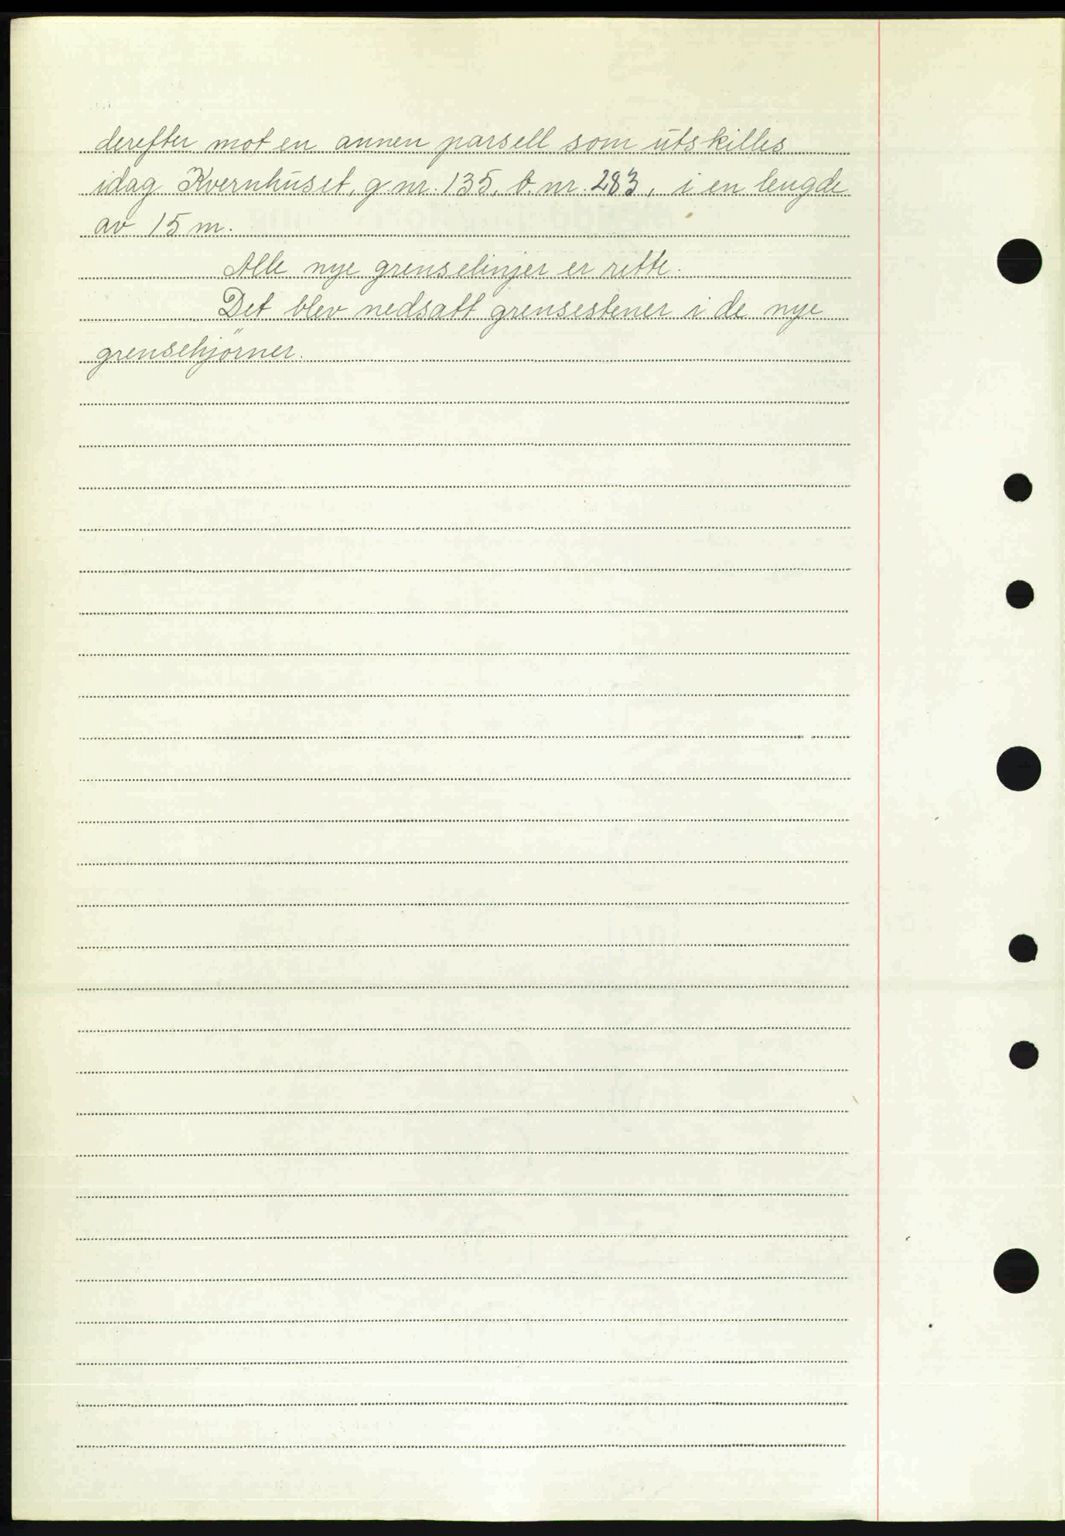 derefter mot en annen parsell som utskilles
idag Kvernhuset, g nr. 135, b nr. 283, i en lengde
av 15 m.
Alle nye grenselinjer er rette.
Det blev nedsatt grensestener i de nye
grensehjørner.